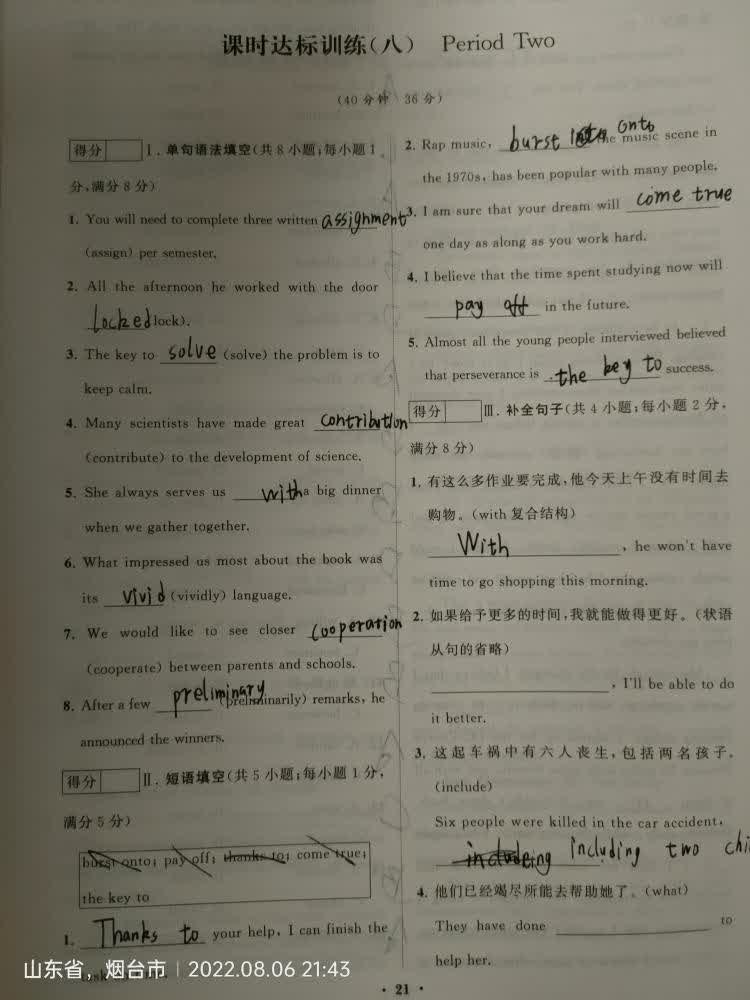 课时达标训练(八) Period Two
(40分钟 36分)
得分 Ⅰ.单句语法填空(共8小题;每小题1
分,满分8分)
1. You will need to complete three written assignment
(assign) per semester.
2. All the afternoon he worked with the door
locked lock).
3. The key to solve (solve) the problem is to
keep calm.
4. Many scientists have made great contribution
(contribute) to the development of science.
5. She always serves us with a big dinner
when we gather together.
6. What impressed us most about the book was
its vivid (vividly) language.
7. We would like to see closer cooperation
(cooperate) between parents and schools.
8. After a few preliminary (preliminarily) remarks, he
announced the winners.
得分 Ⅱ.短语填空(共5小题;每小题1分,
满分5分)
burst onto; pay off; thanks to; come true;
the key to
1. Thanks to your help, I can finish the
2. Rap music, burst onto the music scene in
the 1970s, has been popular with many people.
3. I am sure that your dream will come true
one day as along as you work hard.
4. I believe that the time spent studying now will
pay off in the future.
5. Almost all the young people interviewed believed
that perseverance is the key to success.
得分 Ⅲ.补全句子(共4小题;每小题2分,
满分8分)
1. 有这么多作业要完成,他今天上午没有时间去
购物。(with复合结构)
With , he won't have
time to go shopping this morning.
2. 如果给予更多的时间,我就能做得更好。(状语
从句的省略)
, I'll be able to do
it better.
3. 这起车祸中有六人丧生,包括两名孩子。
(include)
Six people were killed in the car accident,
including including two chi
4. 他们已经竭尽所能去帮助她了。(what)
They have done to
help her.
21
山东省,烟台市 2022.08.06 21:43